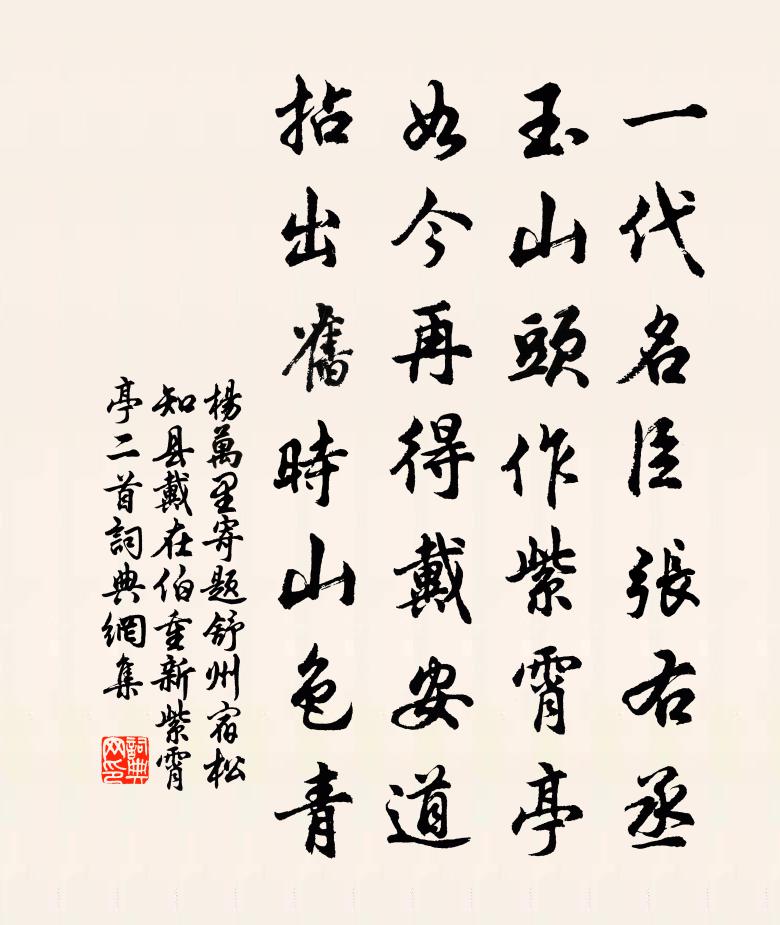 一代名臣張右丞
玉山頭作紫霄亭
如今再得戴安道
拈出舊時山色青
楊萬里寄題舒州宿松
知县戴在伯重新紫霄
亭二首詞典網集
詞典網印